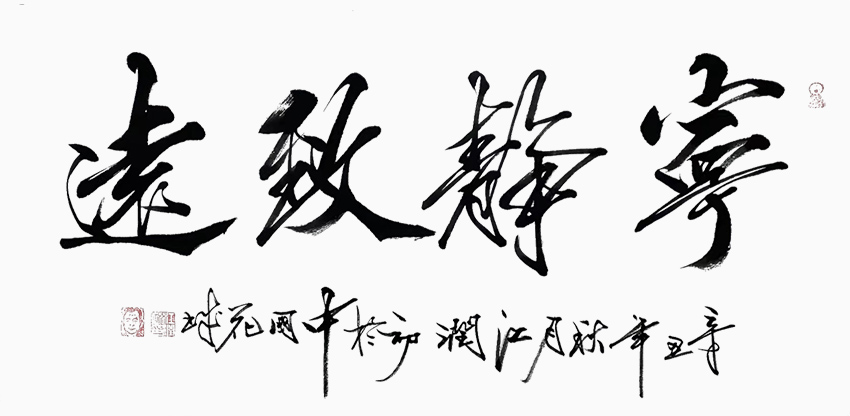 寧靜致遠
辛丑年秋月江潤初於中國花城